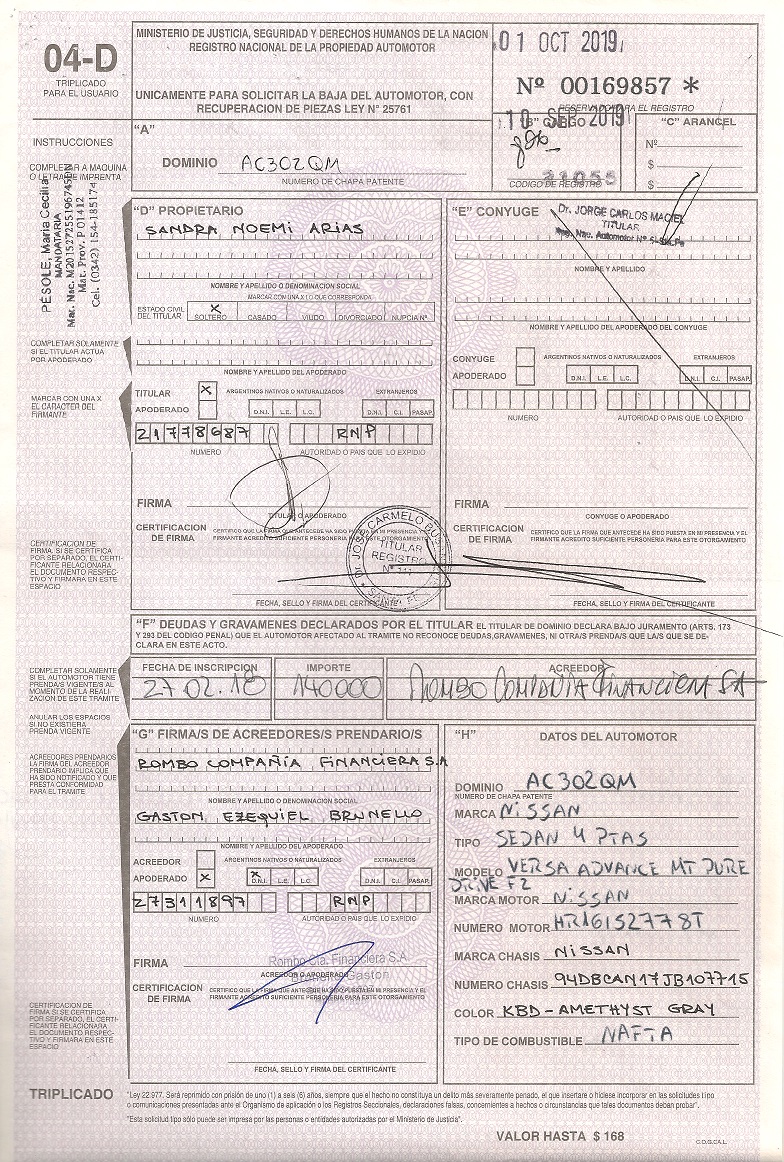 04-D
TRIPLICADO
PARA EL USUARIO
MINISTERIO DE JUSTICIA, SEGURIDAD Y DERECHOS HUMANOS DE LA NACION
REGISTRO NACIONAL DE LA PROPIEDAD AUTOMOTOR
UNICAMENTE PARA SOLICITAR LA BAJA DEL AUTOMOTOR, CON
RECUPERACION DE PIEZAS LEY N° 25761
01 OCT 2019
Nº 00169857 *
RESERVADO PARA EL REGISTRO
10 SEP 2019
"B" CARGO
21055
CODIGO DE REGISTRO
"C" ARANCEL
Nº
$
$
INSTRUCCIONES
COMPLETAR A MAQUINA
O LETRA DE IMPRENTA
PÉSOLE, María Cecilia
MANDATARIA
Mar. Nac. M20152725519674SDN
Mat. Prov. P 01412
Cel. (0342) 154-185174
"A"
DOMINIO AC302QM
NUMERO DE CHAPA PATENTE
"D" PROPIETARIO
SANDRA NOEMI ARIAS
NOMBRE Y APELLIDO O DENOMINACION SOCIAL
MARCAR CON UNA X LO QUE CORRESPONDA
ESTADO CIVIL
DEL TITULAR
X
SOLTERO CASADO VIUDO DIVORCIADO NUPCIA Nº
COMPLETAR SOLAMENTE
SI EL TITULAR ACTUA
POR APODERADO
NOMBRE Y APELLIDO DEL APODERADO
MARCAR CON UNA X
EL CARACTER DEL
FIRMANTE
TITULAR X ARGENTINOS NATIVOS O NATURALIZADOS EXTRANJEROS
APODERADO D.N.I. L.E. L.C. D.N.I. C.I. PASAP.
21778687 RNP
NUMERO AUTORIDAD O PAIS QUE LO EXPIDIO
FIRMA
TITULAR O APODERADO
CERTIFICACION
DE FIRMA
CERTIFICO QUE LA FIRMA QUE ANTECEDE HA SIDO PUESTA EN MI PRESENCIA Y EL
FIRMANTE ACREDITO SUFICIENTE PERSONERIA PARA ESTE OTORGAMIENTO
TITULAR
REGISTRO
FECHA, SELLO Y FIRMA DEL CERTIFICANTE
CERTIFICACION DE
FIRMA. SI SE CERTIFICA
POR SEPARADO, EL CERTI-
FICANTE RELACIONARA
EL DOCUMENTO RESPEC-
TIVO Y FIRMARA EN ESTE
ESPACIO
"E" CONYUGE
Dr. JORGE CARLOS MACIEL
TITULAR
NOMBRE Y APELLIDO
NOMBRE Y APELLIDO DEL APODERADO DEL CONYUGE
CONYUGE ARGENTINOS NATIVOS O NATURALIZADOS EXTRANJEROS
APODERADO D.N.I. L.E. L.C. D.N.I. C.I. PASAP.
NUMERO AUTORIDAD O PAIS QUE LO EXPIDIO
FIRMA
CONYUGE O APODERADO
CERTIFICACION
DE FIRMA
CERTIFICO QUE LA FIRMA QUE ANTECEDE HA SIDO PUESTA EN MI PRESENCIA Y EL
FIRMANTE ACREDITO SUFICIENTE PERSONERIA PARA ESTE OTORGAMIENTO
FECHA, SELLO Y FIRMA DEL CERTIFICANTE
"F" DEUDAS Y GRAVAMENES DECLARADOS POR EL TITULAR EL TITULAR DE DOMINIO DECLARA BAJO JURAMENTO (ARTS. 173
Y 293 DEL CODIGO PENAL) QUE EL AUTOMOTOR AFECTADO AL TRAMITE NO RECONOCE DEUDAS, GRAVAMENES, NI OTRA/S PRENDA/S QUE LA/S QUE SE DE-
CLARA EN ESTE ACTO.
COMPLETAR SOLAMENTE
SI EL AUTOMOTOR TIENE
PRENDA/S VIGENTE/S AL
MOMENTO DE LA REALI-
ZACION DE ESTE TRAMITE
ANULAR LOS ESPACIOS
SI NO EXISTIERA
PRENDA VIGENTE
FECHA DE INSCRIPCION IMPORTE ACREEDOR
27.02.18 140000 ROMBO COMPAÑIA FINANCIERA SA
ACREEDORES PRENDARIOS
LA FIRMA DEL ACREEDOR
PRENDARIO IMPLICA QUE
HA SIDO NOTIFICADO Y QUE
PRESTA CONFORMIDAD
PARA EL TRAMITE
"G" FIRMA/S DE ACREEDORES PRENDARIO/S
ROMBO COMPAÑIA FINANCIERA S.A
NOMBRE Y APELLIDO O DENOMINACION SOCIAL
GASTON EZEQUIEL BRUNELLO
NOMBRE Y APELLIDO DEL APODERADO
ACREEDOR ARGENTINOS NATIVOS O NATURALIZADOS EXTRANJEROS
APODERADO X X D.N.I. L.E. L.C. D.N.I. C.I. PASAP.
27311897 RNP
NUMERO AUTORIDAD O PAIS QUE LO EXPIDIO
FIRMA
Rombo Cía. Financiera S.A.
ACREEDOR O APODERADO
Gaston
CERTIFICACION
DE FIRMA
CERTIFICO QUE LA FIRMA QUE ANTECEDE HA SIDO PUESTA EN MI PRESENCIA Y EL
FIRMANTE ACREDITO SUFICIENTE PERSONERIA PARA ESTE OTORGAMIENTO
FECHA, SELLO Y FIRMA DEL CERTIFICANTE
CERTIFICACION DE
FIRMA SI SE CERTIFICA
POR SEPARADO, EL CERTI-
FICANTE RELACIONARA
EL DOCUMENTO RESPEC-
TIVO Y FIRMARA EN ESTE
ESPACIO
"H" DATOS DEL AUTOMOTOR
DOMINIO AC302QM
NUMERO DE CHAPA PATENTE
MARCA NISSAN
TIPO SEDAN 4 PTAS
MODELO VERSA ADVANCE MT PURE
DRIVE F2
MARCA MOTOR NISSAN
NUMERO MOTOR HR16152778T
MARCA CHASIS NISSAN
NUMERO CHASIS 94DBCAN17JB107715
COLOR KBD-AMETHYST GRAY
TIPO DE COMBUSTIBLE NAFTA
TRIPLICADO
"Ley 22.977. Será reprimido con prisión de uno (1) a seis (6) años, siempre que el hecho no constituya un delito más severamente penado, el que insertare o hiciese incorporar en las solicitudes tipo
o comunicaciones presentadas ante el Organismo de aplicación o los Registros Seccionales, declaraciones falsas, concernientes a hechos o circunstancias que tales documentos deban probar".
"Esta solicitud tipo sólo puede ser impresa por las personas o entidades autorizadas por el Ministerio de Justicia".
VALOR HASTA $ 168
C.O.G.CAL.